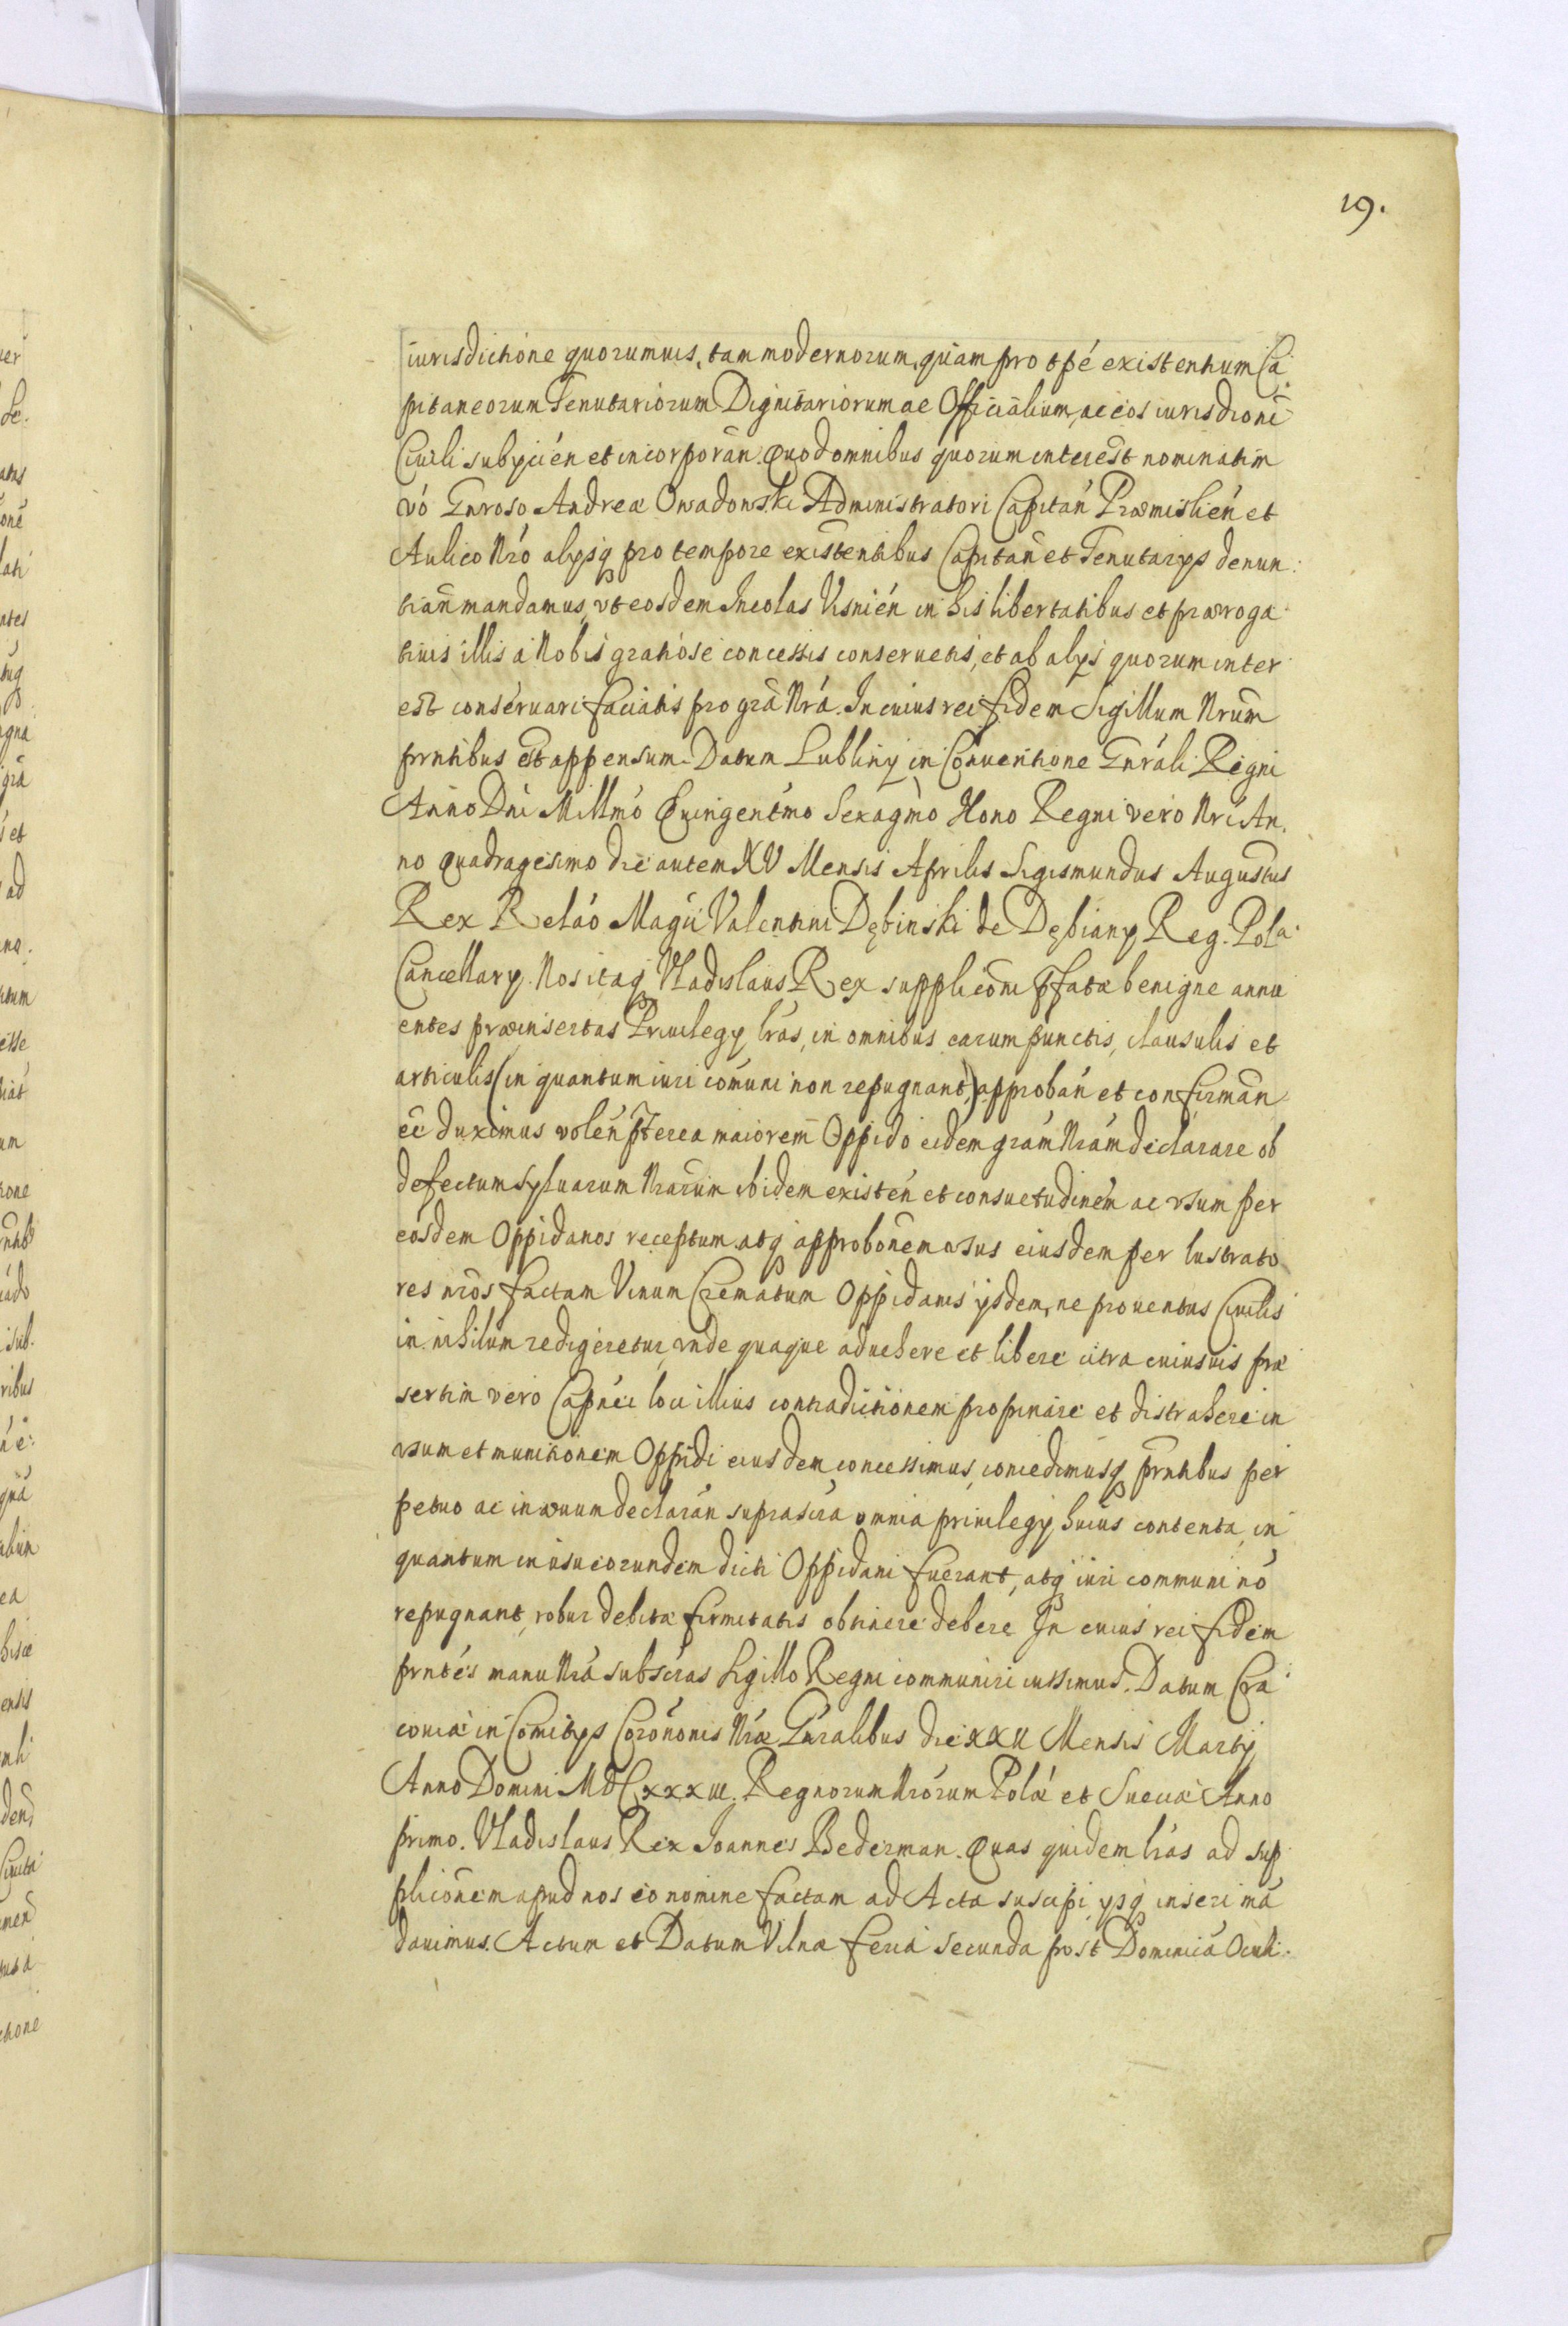 19.
iurisdictione quorumuis, tam modernorum, quam pro tpé existentium Ca
pitaneorum Tenutariorum Dignitariorum ac Officialium, ac eos iurisdioni
Ciuili subijcién et incorporan. Quod omnibus quorum interest nominatim
vó Gnroso Andreæ Owadowski Administratori Capitan Præmislien et
Aulico Nró alysq pro tempore existentibus Capitan et Tenutarys denun
tian mandamus, vt eosdem Incolas Visnién in his libertatibus et præroga
tiuis illis á Nobis gratiose concessis conseruetis, et ab alys quorum inter
est conseruari faciatis pro gra Nrá. In cuius rei fidem Sigillum Nrum
prntibus est appensum. Datum Lubliny in Conuentione Gnráli Regni
Anno Dni Millmó Quingentmo Sexagmo Nono Regni vero Nri An
no Quadragesimo die autem XV Mensis Aprilis Sigismundus Augustus
Rex Relaó Magci Valentini Dębinski de Dębiany Reg. Pola
Cancellary. Nos itaq Vladislaus Rex supplicóni pfatæ benigne annu
entes præinsertas Priuilegy lrás, in omnibus earum punctis, clausulis et
articulis (in quantum iuri cómuni non repugnant,) approbán et confirmán
eé duximus volén pterea maiorem Oppido eidem grám Nrám declarare ob
defectum syluarum Nrarum ibidem existén et consuetudinem ac vsum per
eosdem Oppidanos receptum atq approbonem vsus eiusdem per lustrato
res nros factam Vinum Crematum Oppidanis ysdem, ne prouentus Ciuilis
in nihilum redigeretur, vnde quaque aduehere et libere citra cuiusuis præ
sertim vero Capnei loci illius contradictionem propinare et distrahere in
vsum et munitionem Oppidi eiusdem concessimus, concedimusq prntibus per
petuo ac in æuum declarán suprascra omnia priuilegy huius contenta, in
quantum in vsu eorundem dicti Oppidani fuerant, atq iuri communi nó
repugnant, robur debitæ firmitatis obtinere debere. In cuius rei fidem
prntés manu Nrá subscras Sigillo Regni communiri iussimus. Datum Cra
couiæ in Comitys Corónonis Nræ Gnralibus die XXII Mensis Marty
Anno Domini MDCxxxiii. Regnorum Nrórum Polæ et Sueciæ Anno
primo. Vladislaus Rex Ioannes Bederman. Quas quidem lrás ad sup
plicónem apud nos eo nomine factam ad Acta suscipi, ysq inseri má
dauimus. Actum et Datum Vilnæ feria secunda post Dominicá Oculi.